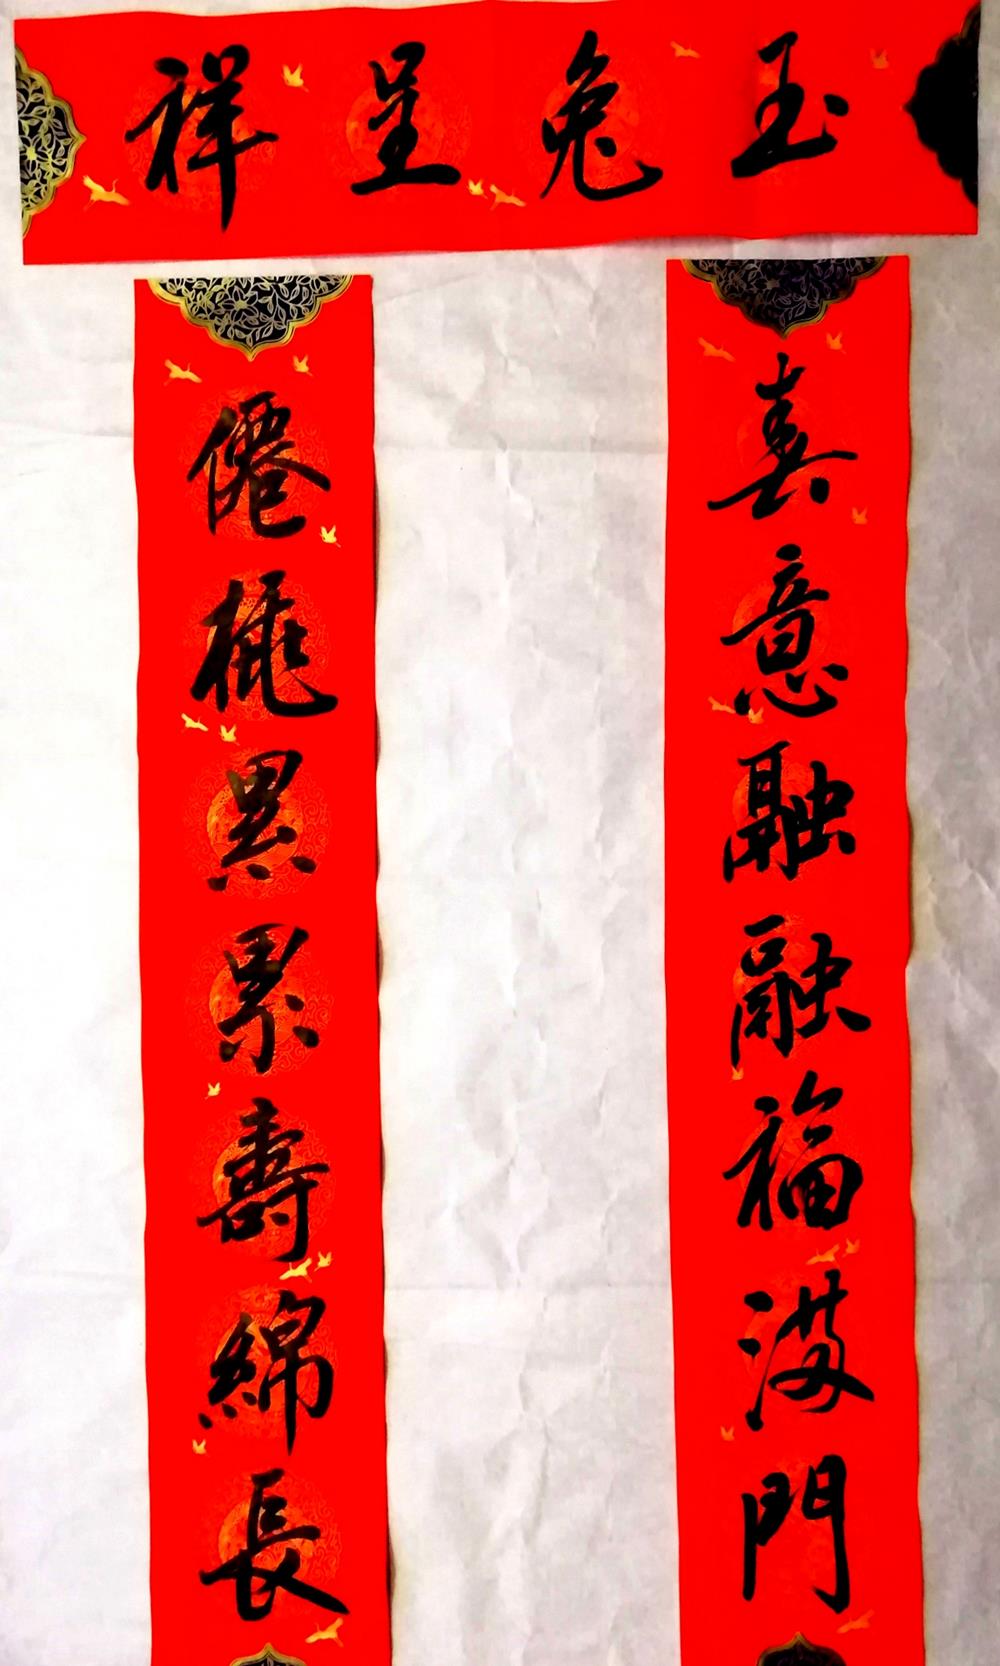 玉兔呈祥
春意融融福滿門
僊桃累累壽綿長